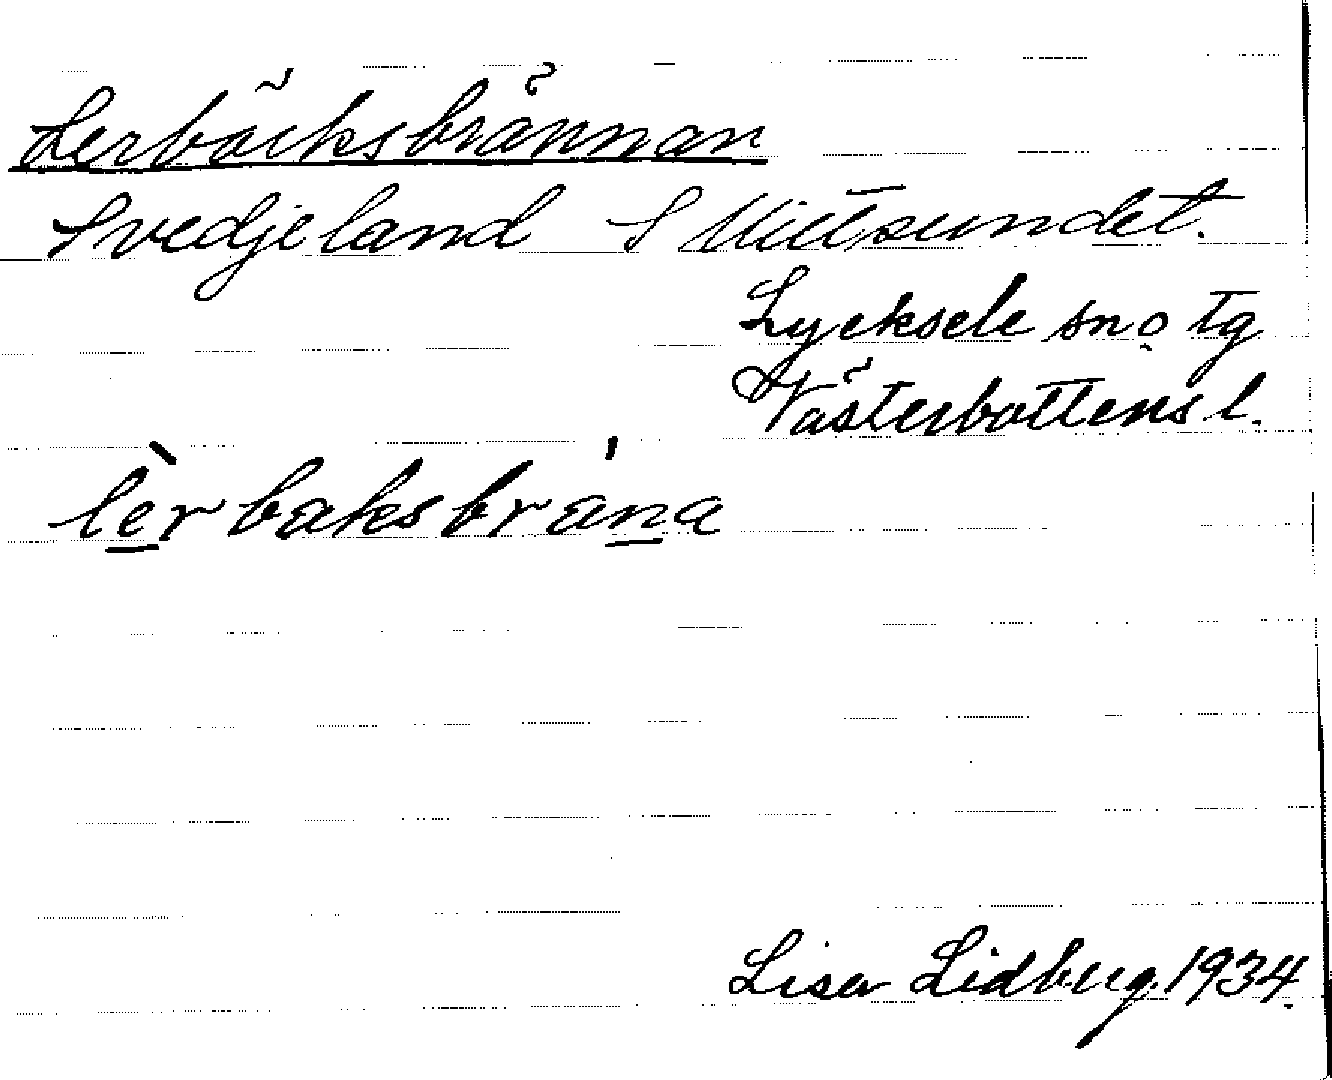 Lerbäcksbrännan
Svedjeland S Vittsundet.
Lycksele sn o tg
Västerbottens l.
lèrbaksbrána
Lisa Lidberg. 1934.